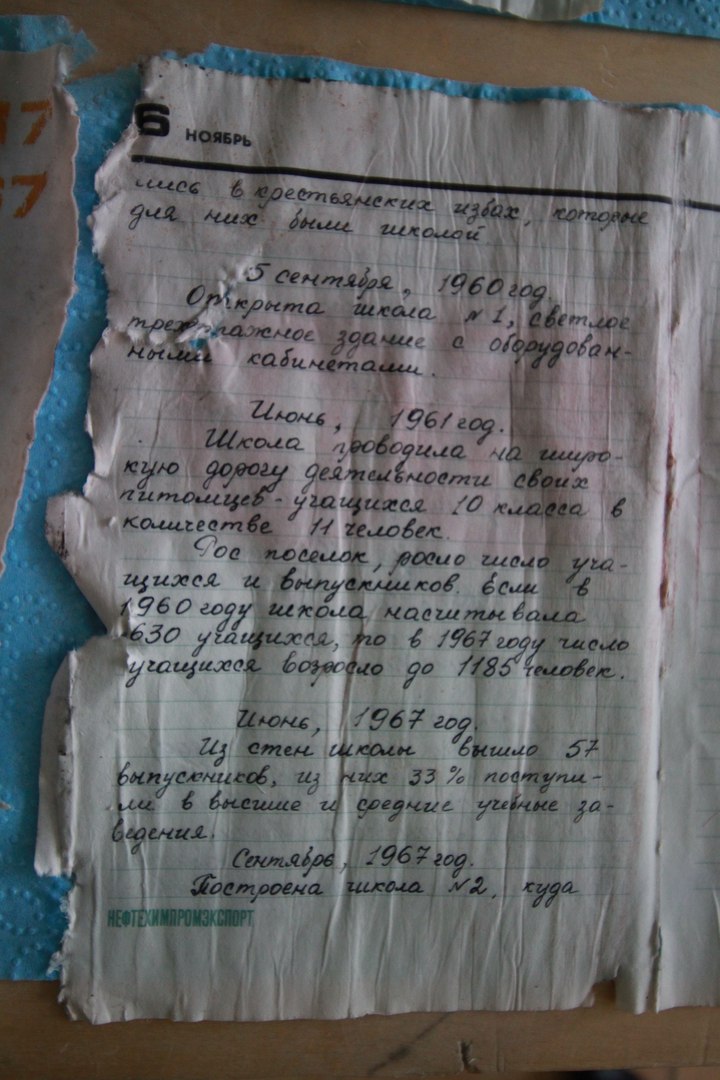 17
67
6 НОЯБРЬ
лись в крестьянских избах, которые
для них были школой
5 сентября, 1960 год.
Открыта школа №1, светлое
трехэтажное здание с оборудован-
ными кабинетами.
Июнь, 1961 год.
Школа проводила на широ-
кую дорогу деятельности своих
питомцев - учащихся 10 класса в
количестве 11 человек.
Рос поселок, росло число уча-
щихся и выпускников. Если в
1960 году школа насчитывала
630 учащихся, то в 1967 году число
учащихся возросло до 1185 человек.
Июнь, 1967 год.
Из стен школы вышло 57
выпускников, из них 33% поступи-
ли в высшие и средние учебные за-
ведения.
Сентябрь, 1967 год.
Построена школа №2, куда
НЕФТЕХИМПРОМЭКСПОРТ